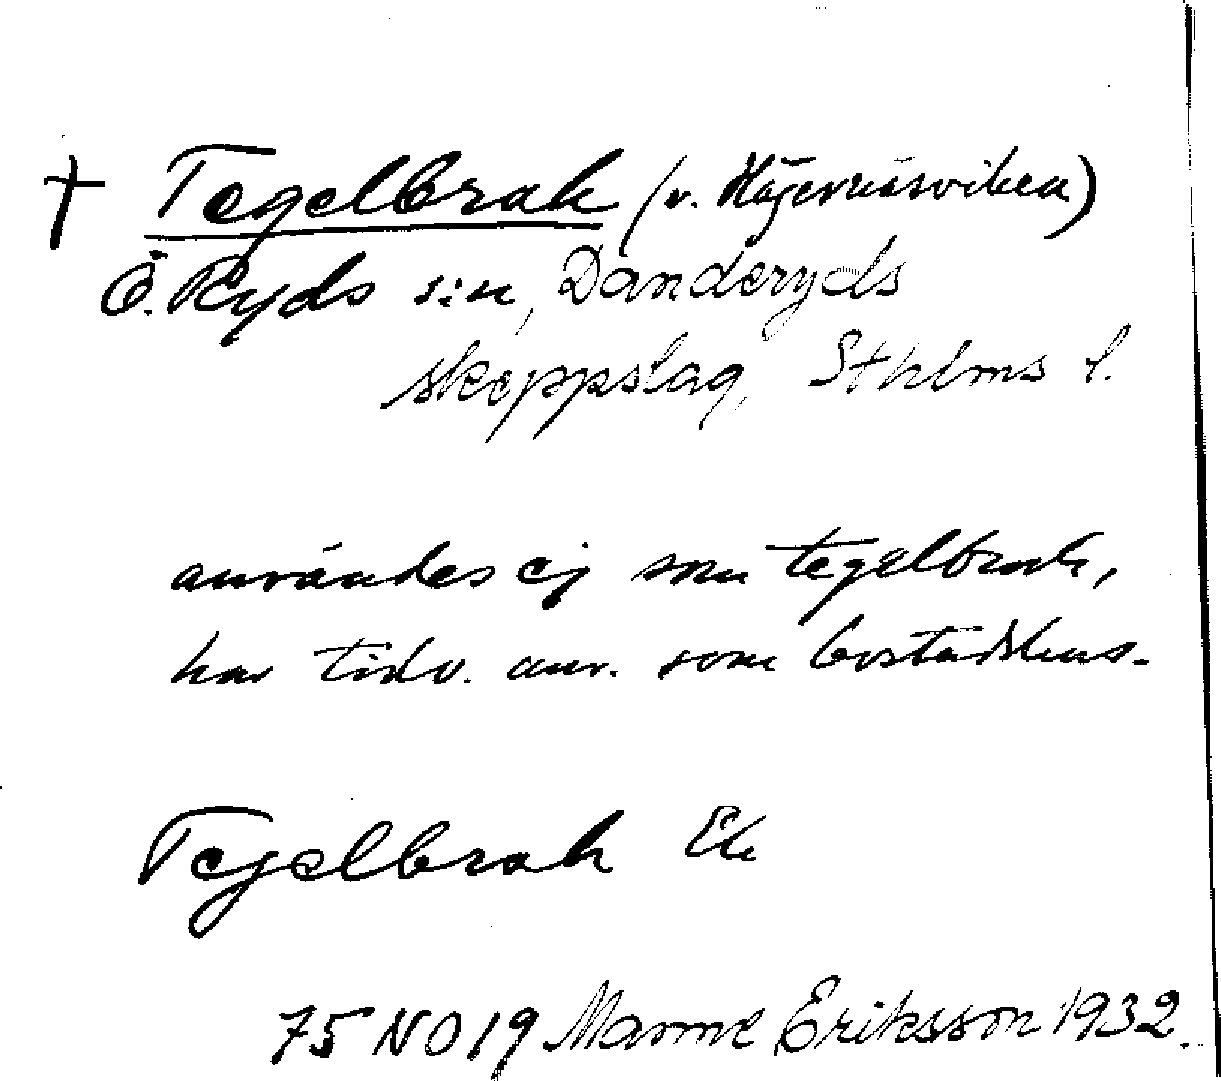 † Tegelbrak (v. Hägernäsviken)
Ö. Ryds sn, Danderyds
skeppslag, Sthlms l.
användes ej som tegelbruk,
har tidv. anv. som bostadshus.
Tegelbrak Ek
75 NO 19 Manne Eriksson 1932.